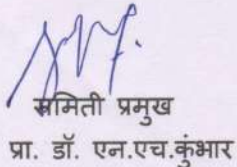 समिती प्रमुख
प्रा. डॉ. एन.एच.कुंभार